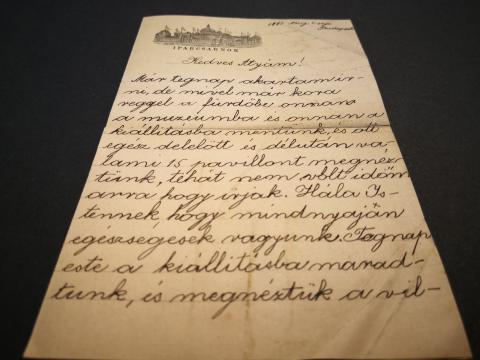 IPARCSARNOK
Kedves Atyám!
Már tegnap akartam ír-
ni, de mivel már kora
reggel a fürdőbe onnan
a muzeumba és onnan a
kiállitásba mentünk, és ott
egész delelőtt és délután va-
lami 15 pavillont megnéz-
tünk, tehát nem vólt időm
arra hogy irjak. Hála Is-
tennek, hogy mindnyáján
egészségesek vagyunk. Tegnap
este a kiállitásba marad-
tunk, és megnéztük a vil-